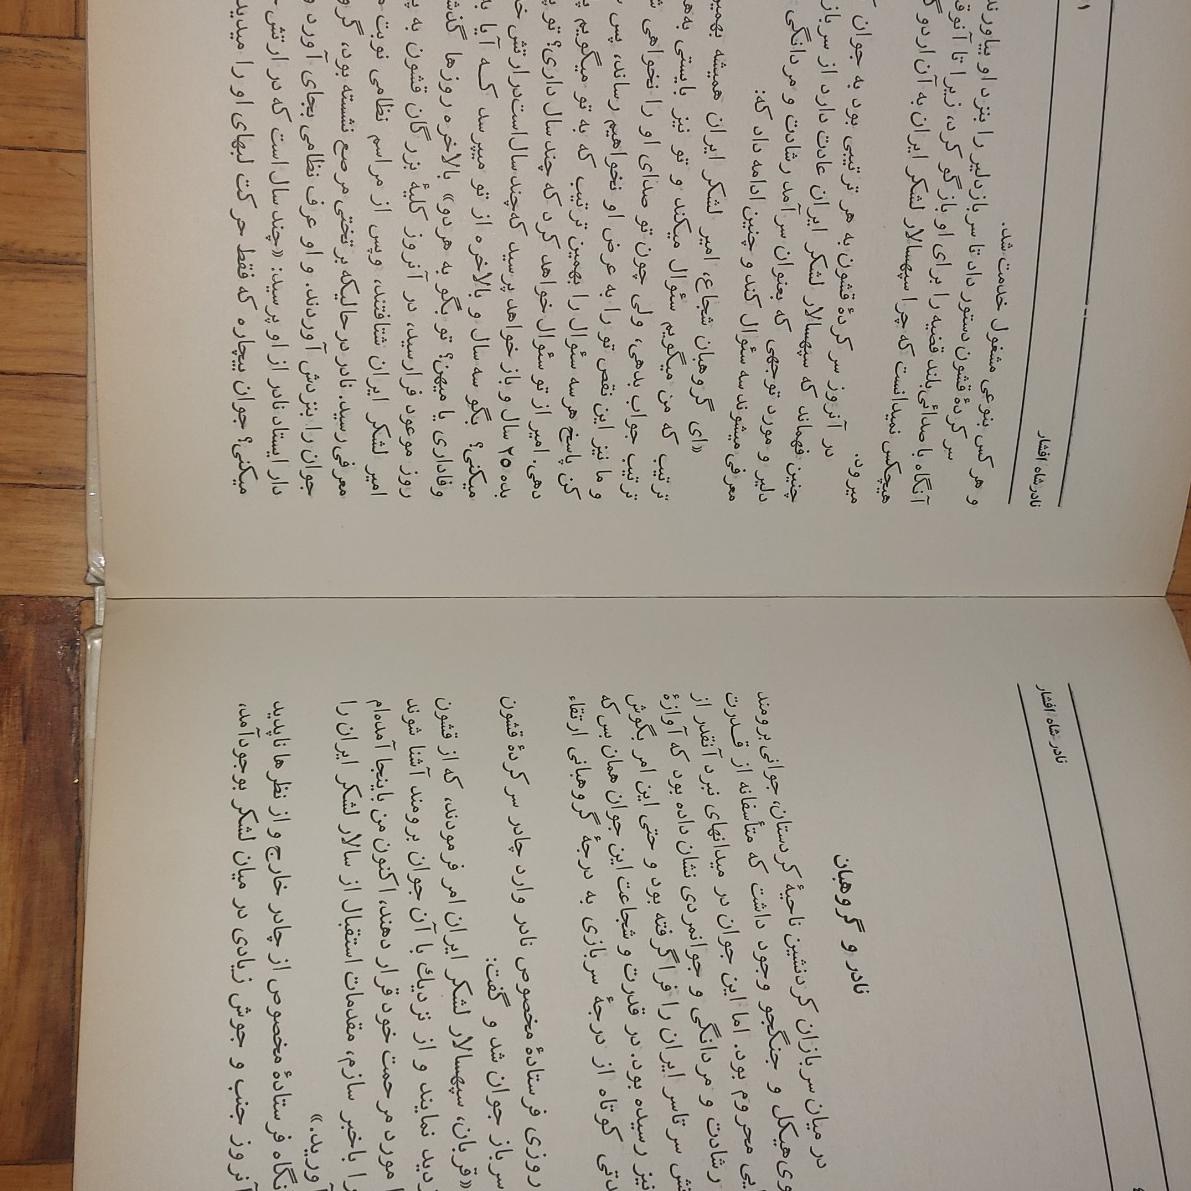 نادر شاه افشار
نادر و گروهبان
در میان سربازان کردنشین ناحیهٔ کردستان، جوانی برومند
وی‌هیکل و جنگجو وجود داشت که متأسفانه از قدرت
یی محروم بود. اما این جوان در میدانهای نبرد آنقدر از
رشادت و مردانگی و جوانمردی نشان داده بود که آوازهٔ
ش سرتاسر ایران را فرا گرفته بود و حتی این امر بگوش
نیز رسیده بود. در قدرت و شجاعت این جوان همان بس که
دتی کوتاه از درجهٔ سربازی به درجهٔ گروهبانی ارتقاء
روزی فرستادهٔ مخصوص نادر وارد چادر سرکردهٔ قشون
سرباز جوان شد و گفت:
«قربان، سپهسالار لشکر ایران امر فرمودند، که از قشون
زدید نمایند و از نزدیك با آن جوان برومند آشنا شوند
مورد مرحمت خود قرار دهند، اکنون من باینجا آمده‌ام
را باخبر سازم، مقدمات استقبال از سالار لشکر ایران را
ورید.»
نگاه فرستادهٔ مخصوص از چادر خارج و از نظرها ناپدید
آنروز جنب و جوش زیادی در میان لشکر بوجودآمد،
نادرشاه افشار
و هر کس بنوعی مشغول خدمت شد.
سر کردهٔ قشون دستور داد تا سرباز دلیر را بنزد او بیاورند
آنگاه با صدائی بلند قضیه را برای او بازگو کرد، زیرا تا آنوقت
هیچکس نمیدانست که چرا سپهسالار لشکر ایران به آن اردوگ
میرود.
در آنروز سر کردهٔ قشون به هر ترتیبی بود به جوان
چنین فهماند که سپهسالار لشکر ایران عادت دارد از سرباز
دلیر و مورد توجهی که بعنوان سرآمد رشادت و مردانگی
معرفی میشوند سه سئوال کند و چنین ادامه داد که:
«ای گروهبان شجاع، امیر لشکر ایران همیشه بهمین
ترتیب که من میگویم سئوال میکند و تو نیز بایستی به‌هم
ترتیب جواب بدهی، ولی چون تو صدای او را نخواهی ش
و ما نیز این نقص تو را به عرض او نخواهیم رساند، پس
کن پاسخ هر سه سئوال را بهمین ترتیب که به تو میگویم
دهی، امیر از تو سئوال خواهد کرد که چند سال داری؟ تو
بده ۲۵ سال و باز خواهد پرسید که‌چند سال‌است‌در‌ارتش خد
میکنی؟ بگو سه سال و بالاخره از تو میپرسد که آیا به
وفاداری یا میهن؟ تو بگو به هردو» بالاخره روزها گذش
روز موعود فرارسید، در آنروز کلیهٔ بزرگان قشون به
امیر لشکر ایران شتافتند، وپس از مراسم نظامی نوبت
معرفی رسید. نادر در حالیکه بر تختی مرصع نشسته بود، گرو
جوان را بنزدش آوردند. و او عرف نظامی بجای آورد و
دار ایستاد نادر از او پرسید: «چند سال است که در ارتش
میکنی؟ جوان بیچاره که فقط حرکت لبهای او را میدید